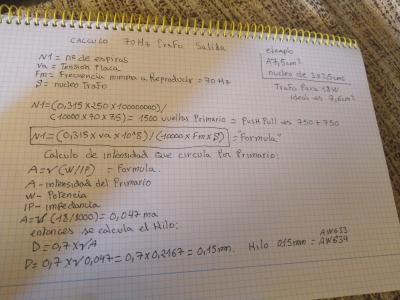 CALCULO 70Hz Trafo Salida
N1 = nº de espiras
Va = Tension Placa
Fm = Frecuencia minima a Reproducir = 70Hz
S = nucleo Trafo
ejemplo
A 7,5cm²
nucleo de 3x2,5cms
Trafo Para 18W
ideal es 7,6cm²
N1=(0,315x250x100000000)/
(10000x70x7,5) = 1500 vueltas Primario = PushPull es 750+750
N1=(0,315xVax10^8)/(10000xFmxS) = "Formula"
Calculo de intensidad que circula Por Primario:
A=√(W/IP) = Formula.
A - intensidad del Primario
W - Potencia
IP - impedancia
A=√(18/8000) = 0,047 ma
entonces se calcula el Hilo:
D=0,7x√A
D=0,7x√0,047=0,7x0,2167=0,15mm. Hilo 0,15mm = AWG33
AWG34